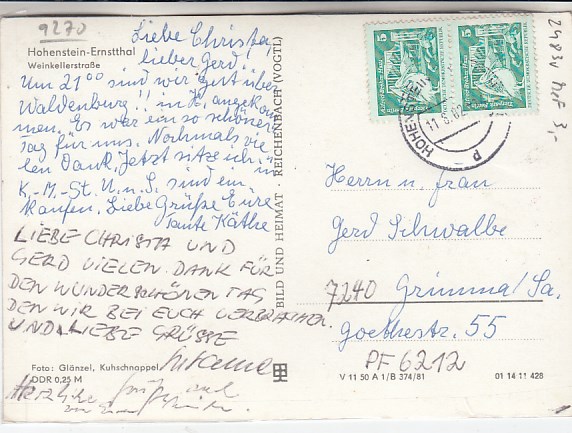 9270
Hohenstein-Ernstthal
Weinkellerstraße
Liebe Christa,
lieber Gerd!
Um 21⁰⁰ sind wir Gest über
Waldenburg!! in H. angekom
men. Es war ein so schöner
Tag für uns. Nochmals vie
len Dank. Jetzt sitze ich in
K.-M.-St. U. u. S. sind ein
kaufen. Liebe Grüße Eure
Tante Käthe
LIEBE CHRISTA UND
GERD VIELEN DANK FÜR
DEN WUNDERSCHÖNEN TAG
DEN WIR BEI EUCH VERBRACHTEN
UND LIEBE GRÜSSE
Herzliche
Foto: Glänzel, Kuhschnappel
DDR 0,25 M
BILD UND HEIMAT · REICHENBACH (VOGTL)
5 5
HOHENSTEIN
11.8.82
2483v
3,-
Herrn u. Frau
Gerd Schwalbe
7240 Grimma/Sa.
Goethestr. 55
PF 6212
V 11 50 A 1/B 374/81 01 14 11 428